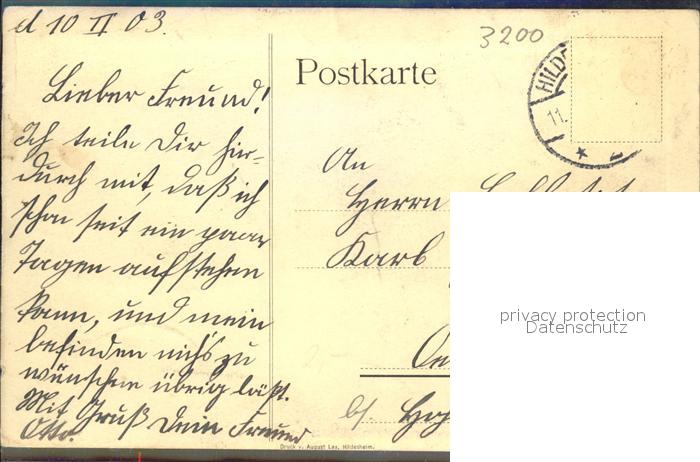 d 10 II 03.
3200
Postkarte
HILD
11.
Lieber Freund!
Ich teile Dir hier=
durch mit, daß ich
schon seit ein paar
Tagen aufstehen
kann, und mein
befinden nichs zu
wünschen übrig läßt.
Mit Gruß Dein Freund
Otto.
An
Herrn
Karl
b/
Druck v. August Lax, Hildesheim.
privacy protection
Datenschutz